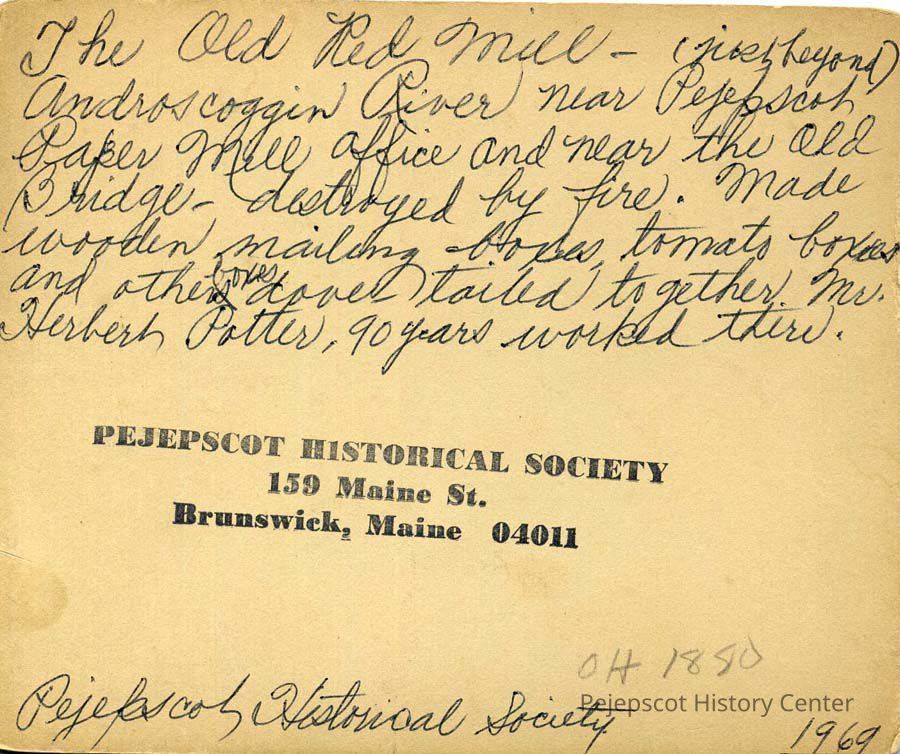 The Old Red Mill - (just beyond)
Androscoggin River near Pejepscot
Paper Mill office and near the Old
Bridge - destroyed by fire. Made
wooden mailing boxes, tomato boxes
and other boxes dove-tailed together. Mr.
Herbert Potter, 90 years worked there.
PEJEPSCOT HISTORICAL SOCIETY
159 Maine St.
Brunswick, Maine 04011
OH 1880
Pejepscot History Center
Pejepscot Historical Society
1969